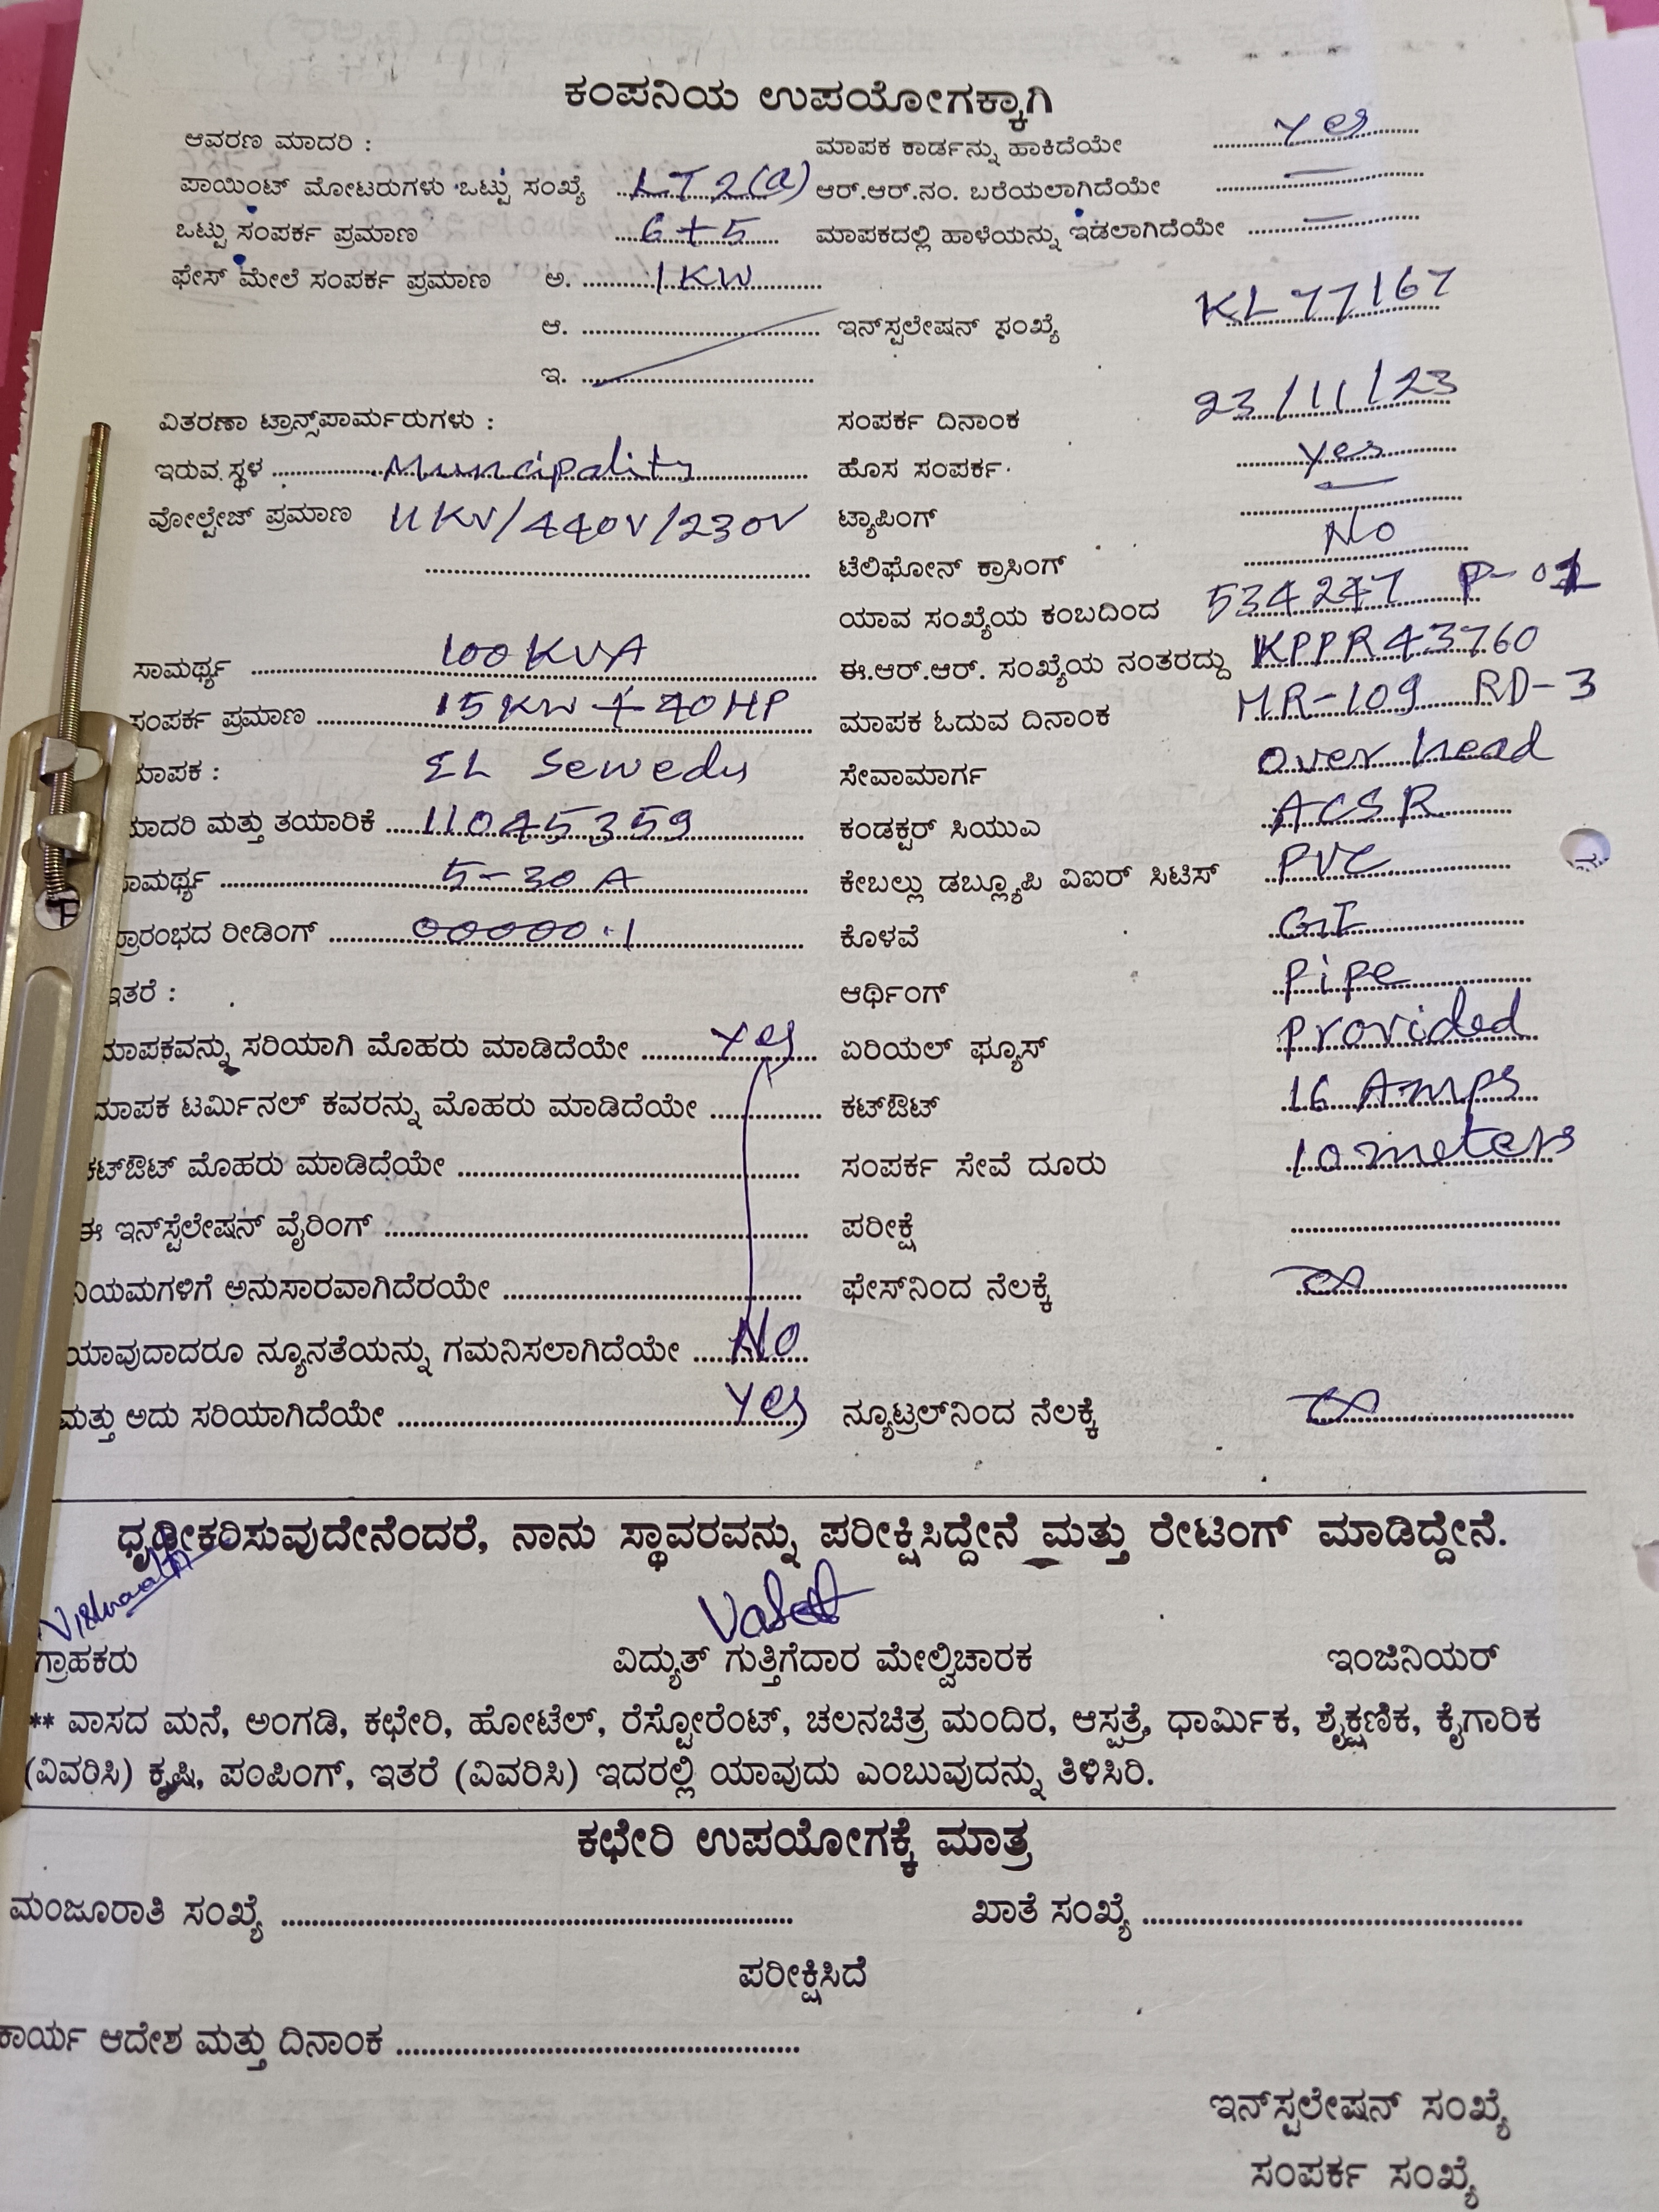 ಕಂಪನಿಯ ಉಪಯೋಗಕ್ಕಾಗಿ
ಆವರಣ ಮಾದರಿ : ಮಾಪಕ ಕಾರ್ಡನ್ನು ಹಾಕಿದೆಯೇ Yes
ಪಾಯಿಂಟ್ ಮೋಟರುಗಳು ಒಟ್ಟು ಸಂಖ್ಯೆ LT2(a) ಆರ್.ಆರ್.ನಂ. ಬರೆಯಲಾಗಿದೆಯೇ —
ಒಟ್ಟು ಸಂಪರ್ಕ ಪ್ರಮಾಣ 6+5 ಮಾಪಕದಲ್ಲಿ ಹಾಳೆಯನ್ನು ಇಡಲಾಗಿದೆಯೇ —
ಫೇಸ್ ಮೇಲೆ ಸಂಪರ್ಕ ಪ್ರಮಾಣ ಅ. 1KW
ಆ. ಇನ್‌ಸ್ಟಲೇಷನ್ ಸಂಖ್ಯೆ KL77167
ಇ.
ವಿತರಣಾ ಟ್ರಾನ್ಸ್‌ಪಾರ್ಮರುಗಳು : ಸಂಪರ್ಕ ದಿನಾಂಕ 23/11/23
ಇರುವ ಸ್ಥಳ Muncipality ಹೊಸ ಸಂಪರ್ಕ Yes
ವೋಲ್ಟೇಜ್ ಪ್ರಮಾಣ 11KV/440V/230V ಟ್ಯಾಪಿಂಗ್ —
ಟೆಲಿಫೋನ್ ಕ್ರಾಸಿಂಗ್ No
ಯಾವ ಸಂಖ್ಯೆಯ ಕಂಬದಿಂದ 534247 P-01
ಸಾಮರ್ಥ್ಯ 100KVA ಈ.ಆರ್.ಆರ್. ಸಂಖ್ಯೆಯ ನಂತರದ್ದು KPPR43760
ಸಂಪರ್ಕ ಪ್ರಮಾಣ 15KW+40HP ಮಾಪಕ ಓದುವ ದಿನಾಂಕ MR-109 RD-3
ಮಾಪಕ : EL Sewedy ಸೇವಾಮಾರ್ಗ Over head
ಮಾದರಿ ಮತ್ತು ತಯಾರಿಕೆ 11045359 ಕಂಡಕ್ಟರ್ ಸಿಯುಎ ACSR
ಸಾಮರ್ಥ್ಯ 5-30A ಕೇಬಲ್ಲು ಡಬ್ಲ್ಯೂಪಿ ವಿಐರ್ ಸಿಟಿಸ್ PVC
ಪ್ರಾರಂಭದ ರೀಡಿಂಗ್ 00000.1 ಕೊಳವೆ GI
ಇತರೆ : ಆರ್ಥಿಂಗ್ Pipe
ಮಾಪಕವನ್ನು ಸರಿಯಾಗಿ ಮೊಹರು ಮಾಡಿದೆಯೇ Yes ಏರಿಯಲ್ ಫ್ಯೂಸ್ Provided
ಮಾಪಕ ಟರ್ಮಿನಲ್ ಕವರನ್ನು ಮೊಹರು ಮಾಡಿದೆಯೇ ಕಟ್‌ಔಟ್ 16 Amps
ಕಟ್‌ಔಟ್ ಮೊಹರು ಮಾಡಿದೆಯೇ ಸಂಪರ್ಕ ಸೇವೆ ದೂರು 10 meters
ಈ ಇನ್‌ಸ್ಟೆಲೇಷನ್ ವೈರಿಂಗ್ ಪರೀಕ್ಷೆ
ನಿಯಮಗಳಿಗೆ ಅನುಸಾರವಾಗಿದೆರಯೇ ಫೇಸ್‌ನಿಂದ ನೆಲಕ್ಕೆ ∞
ಯಾವುದಾದರೂ ನ್ಯೂನತೆಯನ್ನು ಗಮನಿಸಲಾಗಿದೆಯೇ No
ಮತ್ತು ಅದು ಸರಿಯಾಗಿದೆಯೇ Yes ನ್ಯೂಟ್ರಲ್‌ನಿಂದ ನೆಲಕ್ಕೆ ∞
ಧೃಢೀಕರಿಸುವುದೇನೆಂದರೆ, ನಾನು ಸ್ಥಾವರವನ್ನು ಪರೀಕ್ಷಿಸಿದ್ದೇನೆ ಮತ್ತು ರೇಟಿಂಗ್ ಮಾಡಿದ್ದೇನೆ.
ಗ್ರಾಹಕರು ವಿದ್ಯುತ್ ಗುತ್ತಿಗೆದಾರ ಮೇಲ್ವಿಚಾರಕ ಇಂಜಿನಿಯರ್
** ವಾಸದ ಮನೆ, ಅಂಗಡಿ, ಕಛೇರಿ, ಹೋಟೆಲ್, ರೆಸ್ಟೋರೆಂಟ್, ಚಲನಚಿತ್ರ ಮಂದಿರ, ಆಸ್ಪತ್ರೆ, ಧಾರ್ಮಿಕ, ಶೈಕ್ಷಣಿಕ, ಕೈಗಾರಿಕ
(ವಿವರಿಸಿ) ಕೃಷಿ, ಪಂಪಿಂಗ್, ಇತರೆ (ವಿವರಿಸಿ) ಇದರಲ್ಲಿ ಯಾವುದು ಎಂಬುವುದನ್ನು ತಿಳಿಸಿರಿ.
ಕಛೇರಿ ಉಪಯೋಗಕ್ಕೆ ಮಾತ್ರ
ಮಂಜೂರಾತಿ ಸಂಖ್ಯೆ ಖಾತೆ ಸಂಖ್ಯೆ
ಪರೀಕ್ಷಿಸಿದೆ
ಕಾರ್ಯ ಆದೇಶ ಮತ್ತು ದಿನಾಂಕ
ಇನ್‌ಸ್ಟಲೇಷನ್ ಸಂಖ್ಯೆ
ಸಂಪರ್ಕ ಸಂಖ್ಯೆ